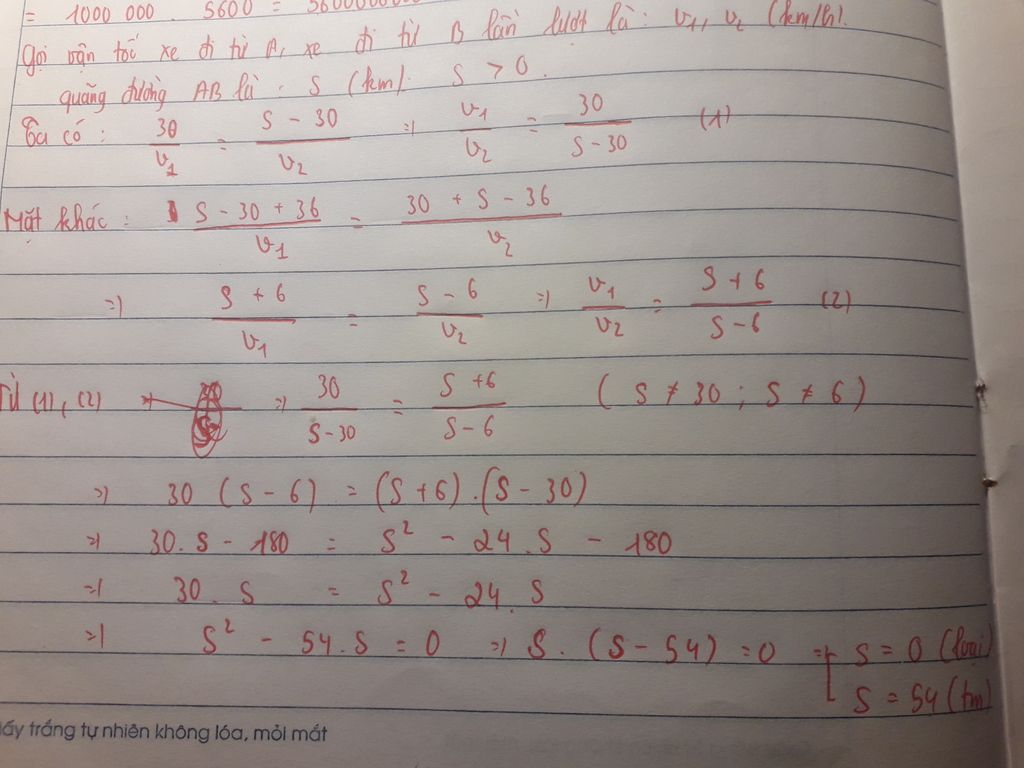 = 1000 000 . 5600 = 5600000000
Gọi vận tốc xe đi từ A, xe đi từ B lần lượt là : v₁, v₂ (km/h).
quãng đường AB là : S (km) . S > 0 .
Ta có : 30/v₁ = S - 30/v₂ => v₁/v₂ = 30/S - 30 (1)
Mặt khác : S - 30 + 36/v₁ = 30 + S - 36/v₂
=> S + 6/v₁ = S - 6/v₂ => v₁/v₂ = S + 6/S - 6 (2)
Từ (1), (2) => 30/S - 30 = S + 6/S - 6 ( S ≠ 30 ; S ≠ 6 )
=> 30 (S - 6) = (S + 6) . (S - 30)
=> 30. S - 180 = S² - 24 . S - 180
=> 30 . S = S² - 24 . S
=> S² - 54 . S = 0 => S . (S - 54) = 0 => [ S = 0 (loại)
S = 54 (tm)
iấy trắng tự nhiên không lóa, mỏi mắt